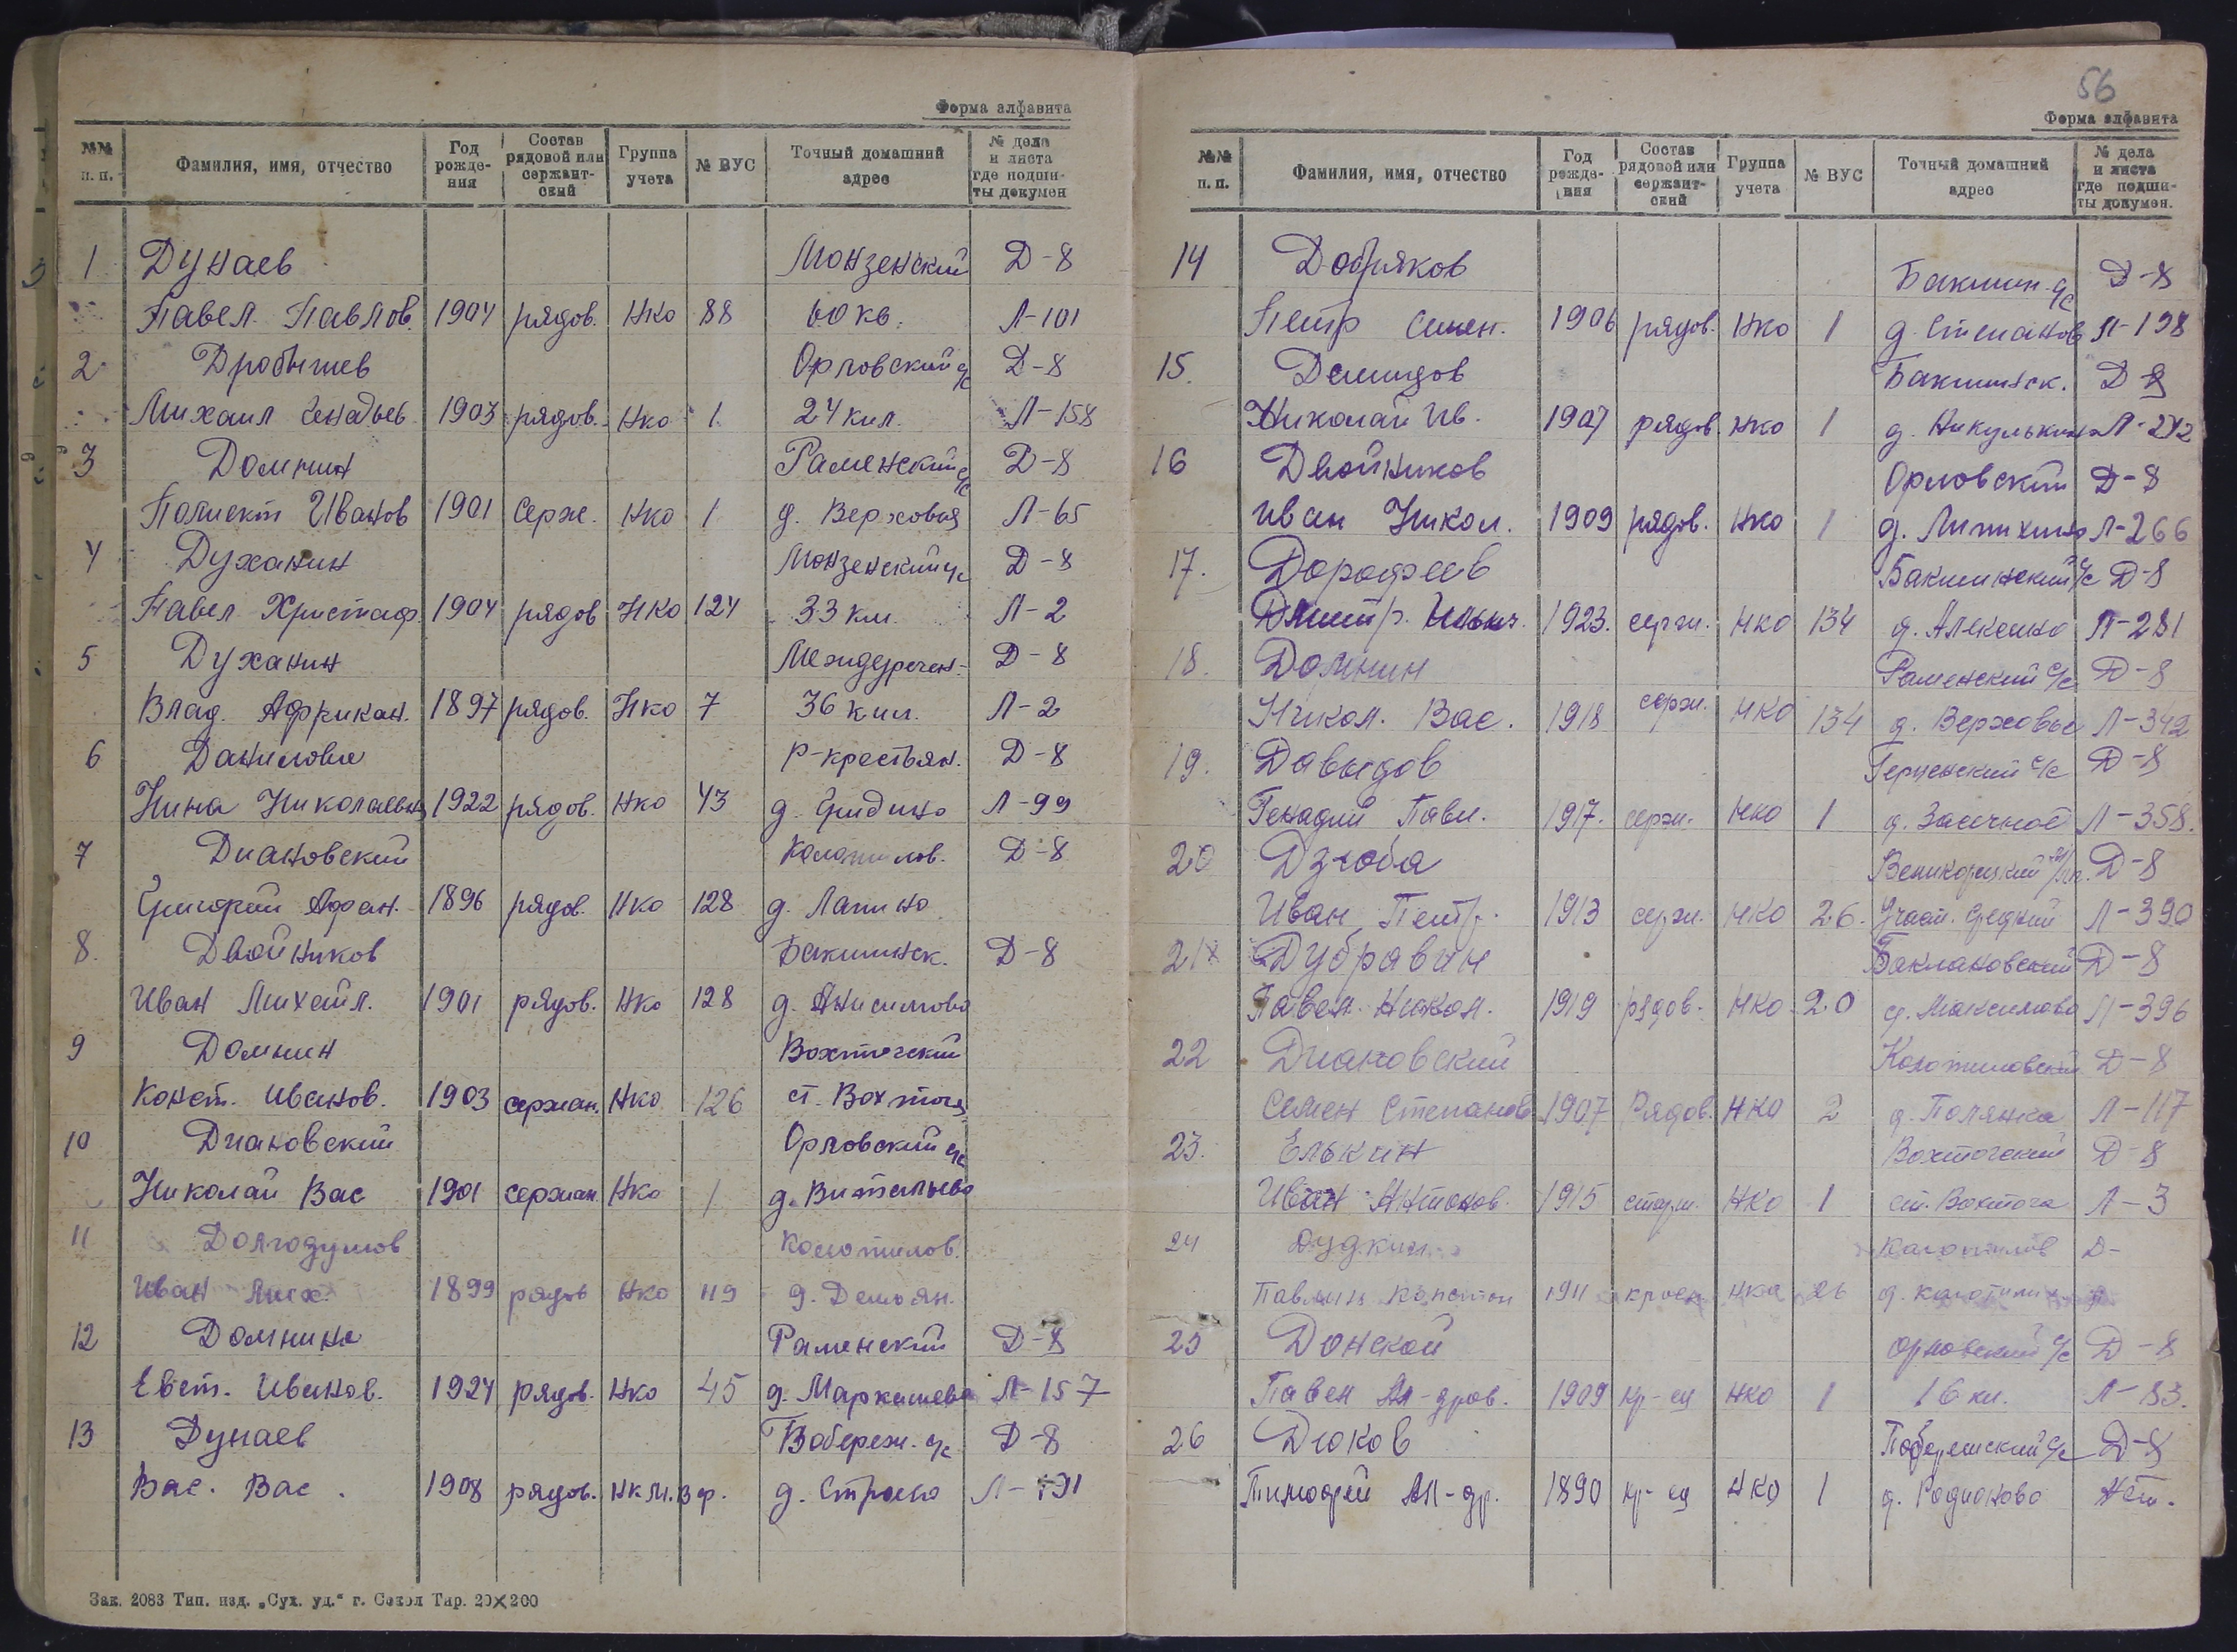 Форма алфавита
№№ п. п. Фамилия, имя, отчество Год рожде- ния Состав рядовой или сержант- ский Группа учета № ВУС Точный домашний адрес № дела и листа где подши- ты докумен
1 Дунаев Монзенский Д-8
Павел Павлов. 1904 рядов. НКО 88 60 кв. Л-101
2 Дробышев Орловский с/с Д-8
Михаил Генадьев 1903 рядов. НКО 1 24 кил. Л-158
3 Домнин Раменский с/с Д-8
Полиект Иванов 1901 Серж. НКО 1 д. Верховья Л-65
4 Духанин Монзенский с/с Д-8
Павел Христоф 1904 рядов НКО 124 33 км. Л-2
5 Духанин Междуречен- Д-8
Влад. Африкан. 1897 рядов. НКО 7 36 кил. Л-2
6 Данилова Р-крестьян. Д-8
Нина Николаевн 1922 рядов. НКО 43 д. Гридино Л-99
7 Диановский Колотилов. Д-8
Григорий Афан. 1896 рядов. НКО 128 д. Лапино
8. Двойников Бакшинск. Д-8
Иван Михайл. 1901 рядов. НКО 128 д. Анисимово
9 Домнин Вохтогский
Конст. Иванов. 1903 сержан. НКО 126 ст. Вохтога
10 Диановский Орловский с/с
Николай Вас 1901 сержан. НКО 1 д. Витальево
11 Долгодумов Колотилов.
Иван Мих. 1899 рядов НКО 119 д. Демьян.
12 Домнина Раменский Д-8
Евст. Иванов. 1924 рядов. НКО 45 д. Маркашево Л-157
13 Дунаев Побереж. с/с Д-8
Вас. Вас. 1908 рядов. НК М. В ф. д. Строево
Зак. 2083 Тип. изд. „Сух. уд.“ г. Сокол Тир. 20×200
56
Форма алфавита
№№ п. п. Фамилия, имя, отчество Год рожде- ния Состав рядовой или сержант- ский Группа учета № ВУС Точный домашний адрес № дела и листа где подши- ты докумен.
14 Добряков Бакшин. с/с Д-8
Петр Семен. 1906 рядов. НКО 1 д. Степанов Л-198
15. Демидов Бакшинск. Д-8
Николай Ив. 1907 рядов. НКО 1 д. Никулькино Л-242
16 Двойников Орловский Д-8
Иван Никол. 1909 рядов. НКО 1 д. Липихино Л-266
17. Дорофеев Бакшинский с/с Д-8
Дмитр. Ильич. 1923. серж. НКО 134 д. Алексино Л-281
18. Домнин Раменский с/с Д-8
Никол. Вас. 1918 серж. НКО 134 д. Верховье Л-342
19. Давыдов Герценский с/с Д-8
Генадий Павл. 1917. серж. НКО 1 д. Засечное Л-358.
20 Дзюба Д-8
Иван Петр. 1913 серж. НКО 26. Л-390
21 Дубравин Баклановский Д-8
Павел Никол. 1919 рядов. НКО 20 д. Максимово Л-396
22 Диановский Колотиловский Д-8
Семен Степанов 1907 Рядов. НКО 2 д. Полянка Л-117
23. Елькин Вохтогский Д-8
Иван Антонов. 1915 старш. НКО 1 ст. Вохтога Л-3
24 Дудкин Колотилов Д-
Павлин Констон 1911 НКО 26 д. Колотили
25 Донской Орловский с/с Д-8
Павел Ал-дров. 1909 кр-ец НКО 1 16 км. Л-83.
26 Дюков Побережский с/с Д-8
Тимофей Ал-др. 1890 кр-ец НКО 1 д. Родионово нет.